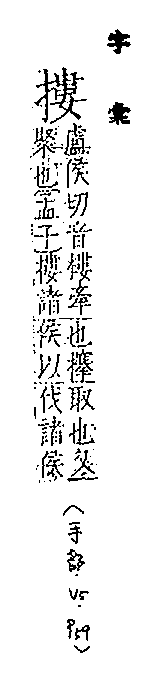 字彙
摟
盧侯切音樓牽也摟取也又
聚也孟子摟諸侯以伐諸侯
(手部 V5 P59)